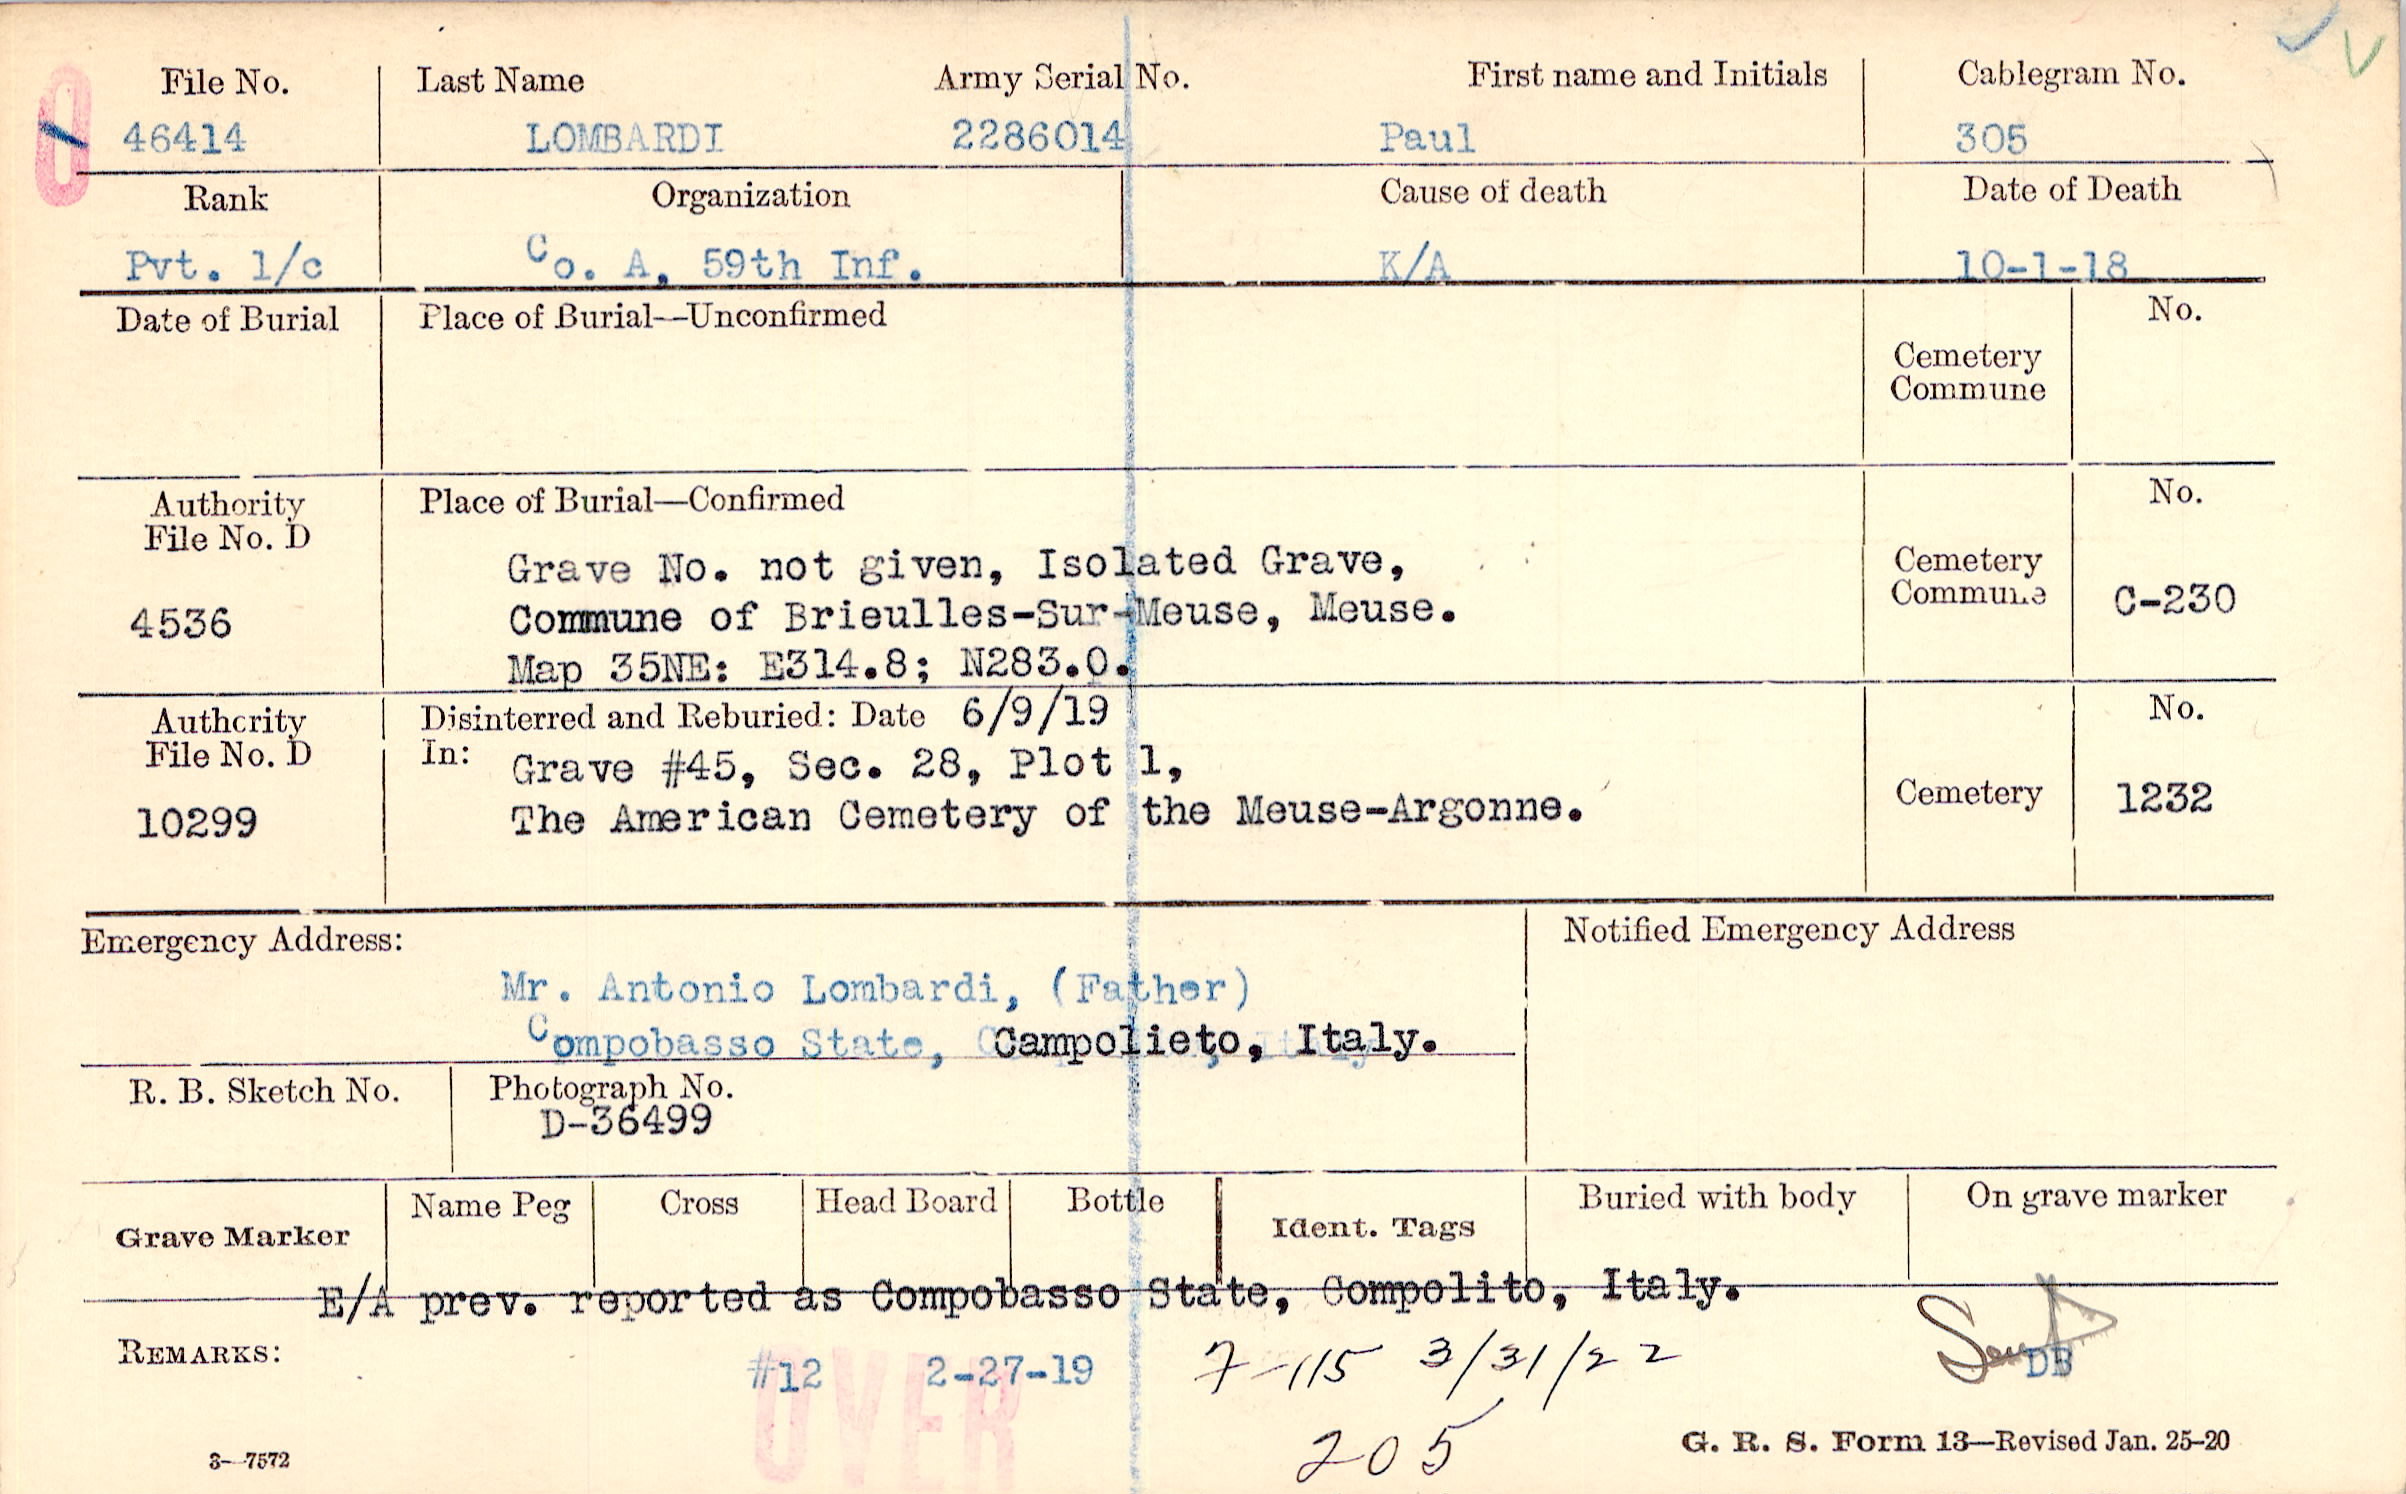 File No. Last Name Army Serial No. First name and Initials Cablegram No.
46414 LOMBARDI 2286014 Paul 305
Rank Organization Cause of death Date of Death
Pvt. 1/c Co. A, 59th Inf. K/A 10-1-18
Date of Burial Place of Burial—Unconfirmed No.
Cemetery
Commune
Authority Place of Burial—Confirmed No.
File No. D
Grave No. not given, Isolated Grave, Cemetery
4536 Commune of Brieulles-Sur-Meuse, Meuse. Commune C-230
Map 35NE: E314.8; N283.0.
Authority Disinterred and Reburied: Date 6/9/19 No.
File No. D In: Grave #45, Sec. 28, Plot 1,
10299 The American Cemetery of the Meuse-Argonne. Cemetery 1232
Emergency Address: Notified Emergency Address
Mr. Antonio Lombardi, (Father)
Compobasso State, Campolieto, Italy.
R. B. Sketch No. Photograph No.
D-36499
Grave Marker Name Peg Cross Head Board Bottle Ident. Tags Buried with body On grave marker
E/A prev. reported as Compobasso State, Compolito, Italy.
REMARKS: #12 2-27-19 7-115 3/31/22 DB
OVER
205
3—7572 G. R. S. Form 13—Revised Jan. 25-20